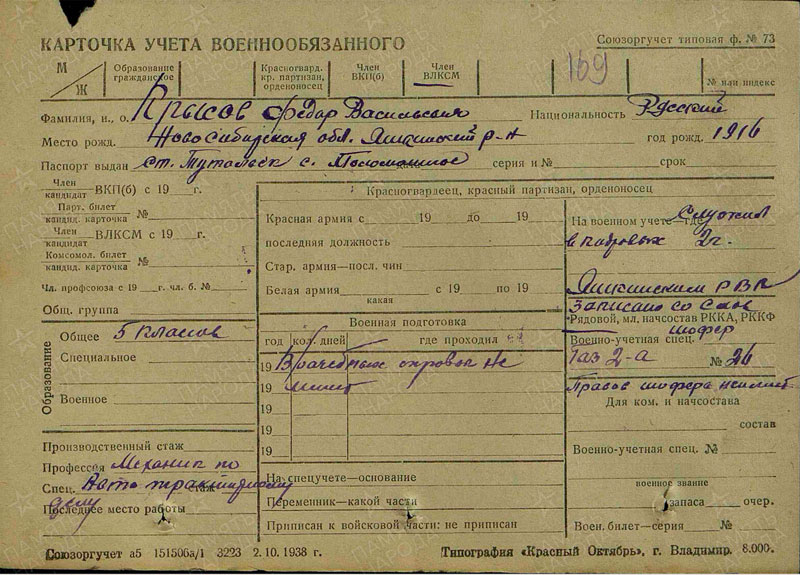 КАРТОЧКА УЧЕТА ВОЕННООБЯЗАННОГО
Союзоргучет типовая ф. № 73
М / Ж
Образование гражданское
Красногвард. кр. партизан, орденоносец
Член ВКП(б)
Член ВЛКСМ
169
№ или индекс
Фамилия, и., о. Крысов Федор Васильевич Национальность Русский
Место рожд. Новосибирская обл. Яшкинский р-н год рожд. 1916
Паспорт выдан ст. Тутальск с. Поломошное серия и № срок
Член кандидат ВКП(б) с 19 г.
Парт. билет кандид. карточка №
Член кандидат ВЛКСМ с 19 г.
Комсомол. билет кандид. карточка №
Чл. профсоюза с 19 г. чл. б. №
Общ. группа
Образование
Общее 5 классов
Специальное
Военное
Производственный стаж
Профессия Механик по
Спец. Авто тракторному стаж
делу
Последнее место работы
Красногвардеец, красный партизан, орденоносец
Красная армия с 19 до 19
последняя должность
Стар. армия—посл. чин
Белая армия с 19 по 19
какая
Военная подготовка
год кол. дней где проходил
19 Врачебных справок не
19 имеет
19
19
19
На спецучете—основание
Переменник—какой части
Приписан к войсковой части: не приписан
На военном учете—где Служил
в кадровых 2г.
Яшкинским РВК
Записано со слов
Рядовой, мл. начсостав РККА, РККФ
шофер
Военно-учетная спец.
Газ 2-а № 26
Правов шофера не имеет
Для ком. и начсостава
состав
Военно-учетная спец. №
военное звание
запаса очер.
Воен. билет—серия №
Союзоргучет а5 151506а/1 3223 2.10.1938 г.
Типография «Красный Октябрь», г. Владимир. 8.000.